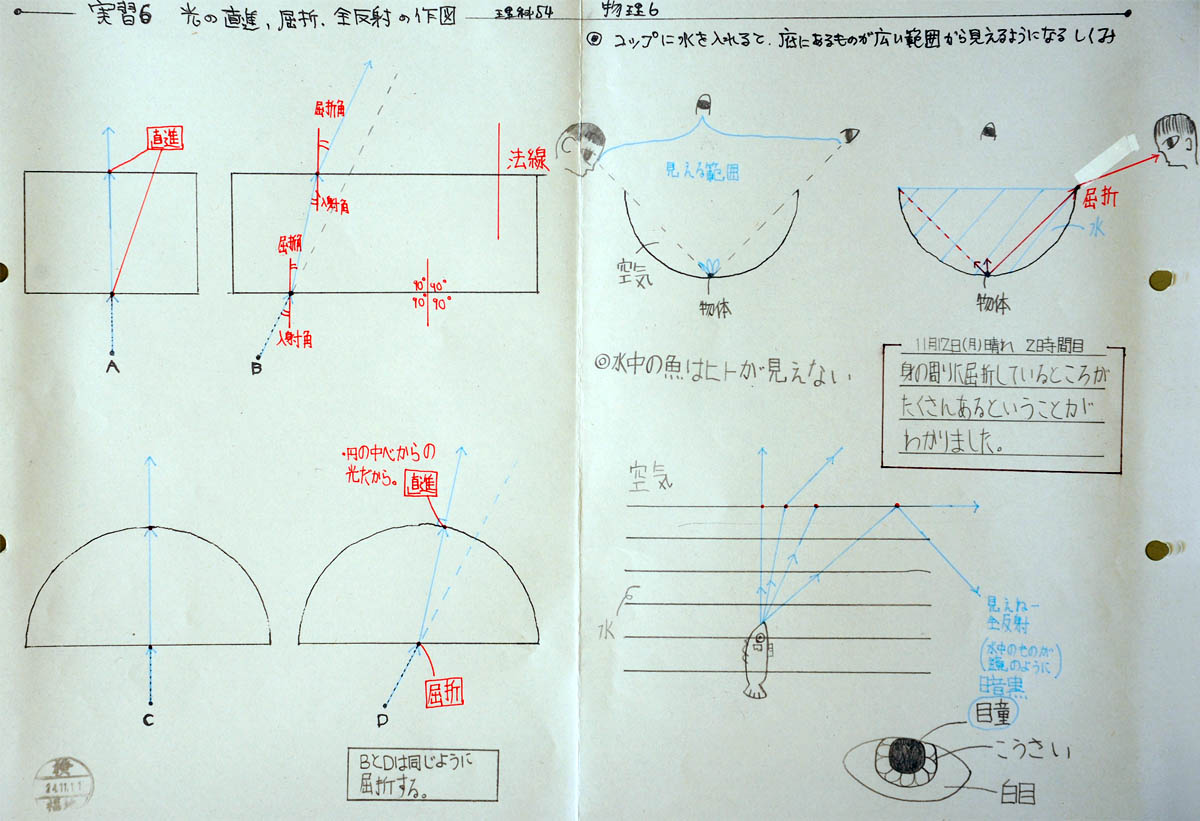 実習6 光の直進、屈折、全反射の作図
理科54
物理6
◎ コップに水を入れると、底にあるものが広い範囲から見えるようになるしくみ
直進
屈折角
法線
入射角
屈折角
90° 90°
90° 90°
入射角
A
B
見える範囲
空気
物体
屈折
水
物体
◎水中の魚はヒトが見えない
11月12日(月)晴れ 2時間目
身の周りに屈折しているところが
たくさんあるということが
わかりました。
・円の中心からの
光だから。
直進
屈折
C
D
BとDは同じように
屈折する。
空気
水
見えねー
全反射
(水中のものが
鏡のように)
暗黒
瞳
こうさい
白目
検
24.11.11